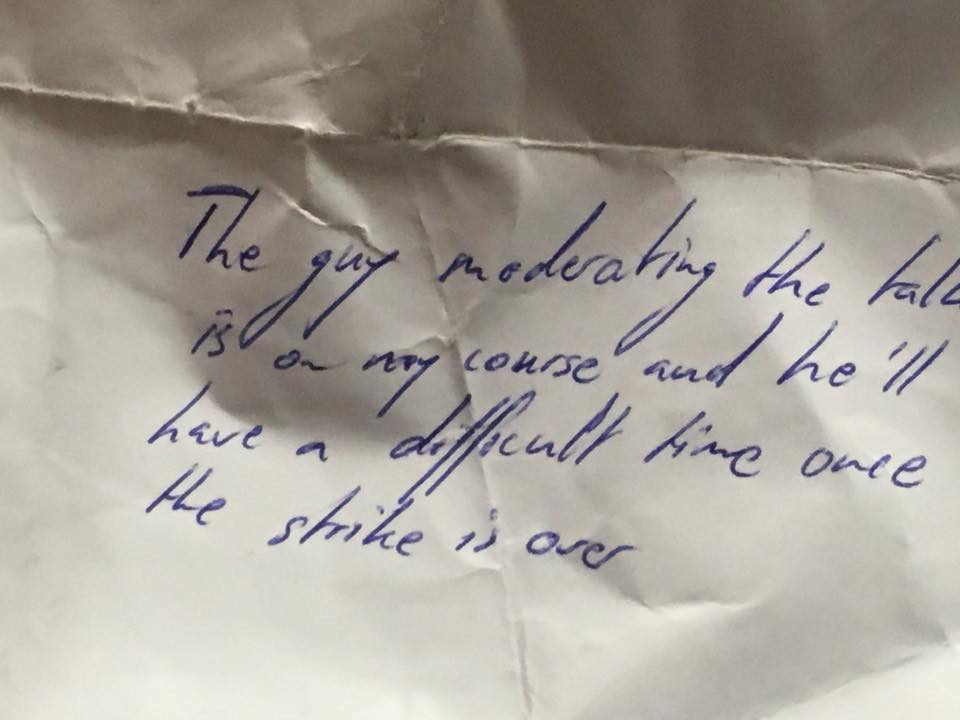 The guy moderating the talk
is on my course and he'll
have a difficult time once
the strike is over